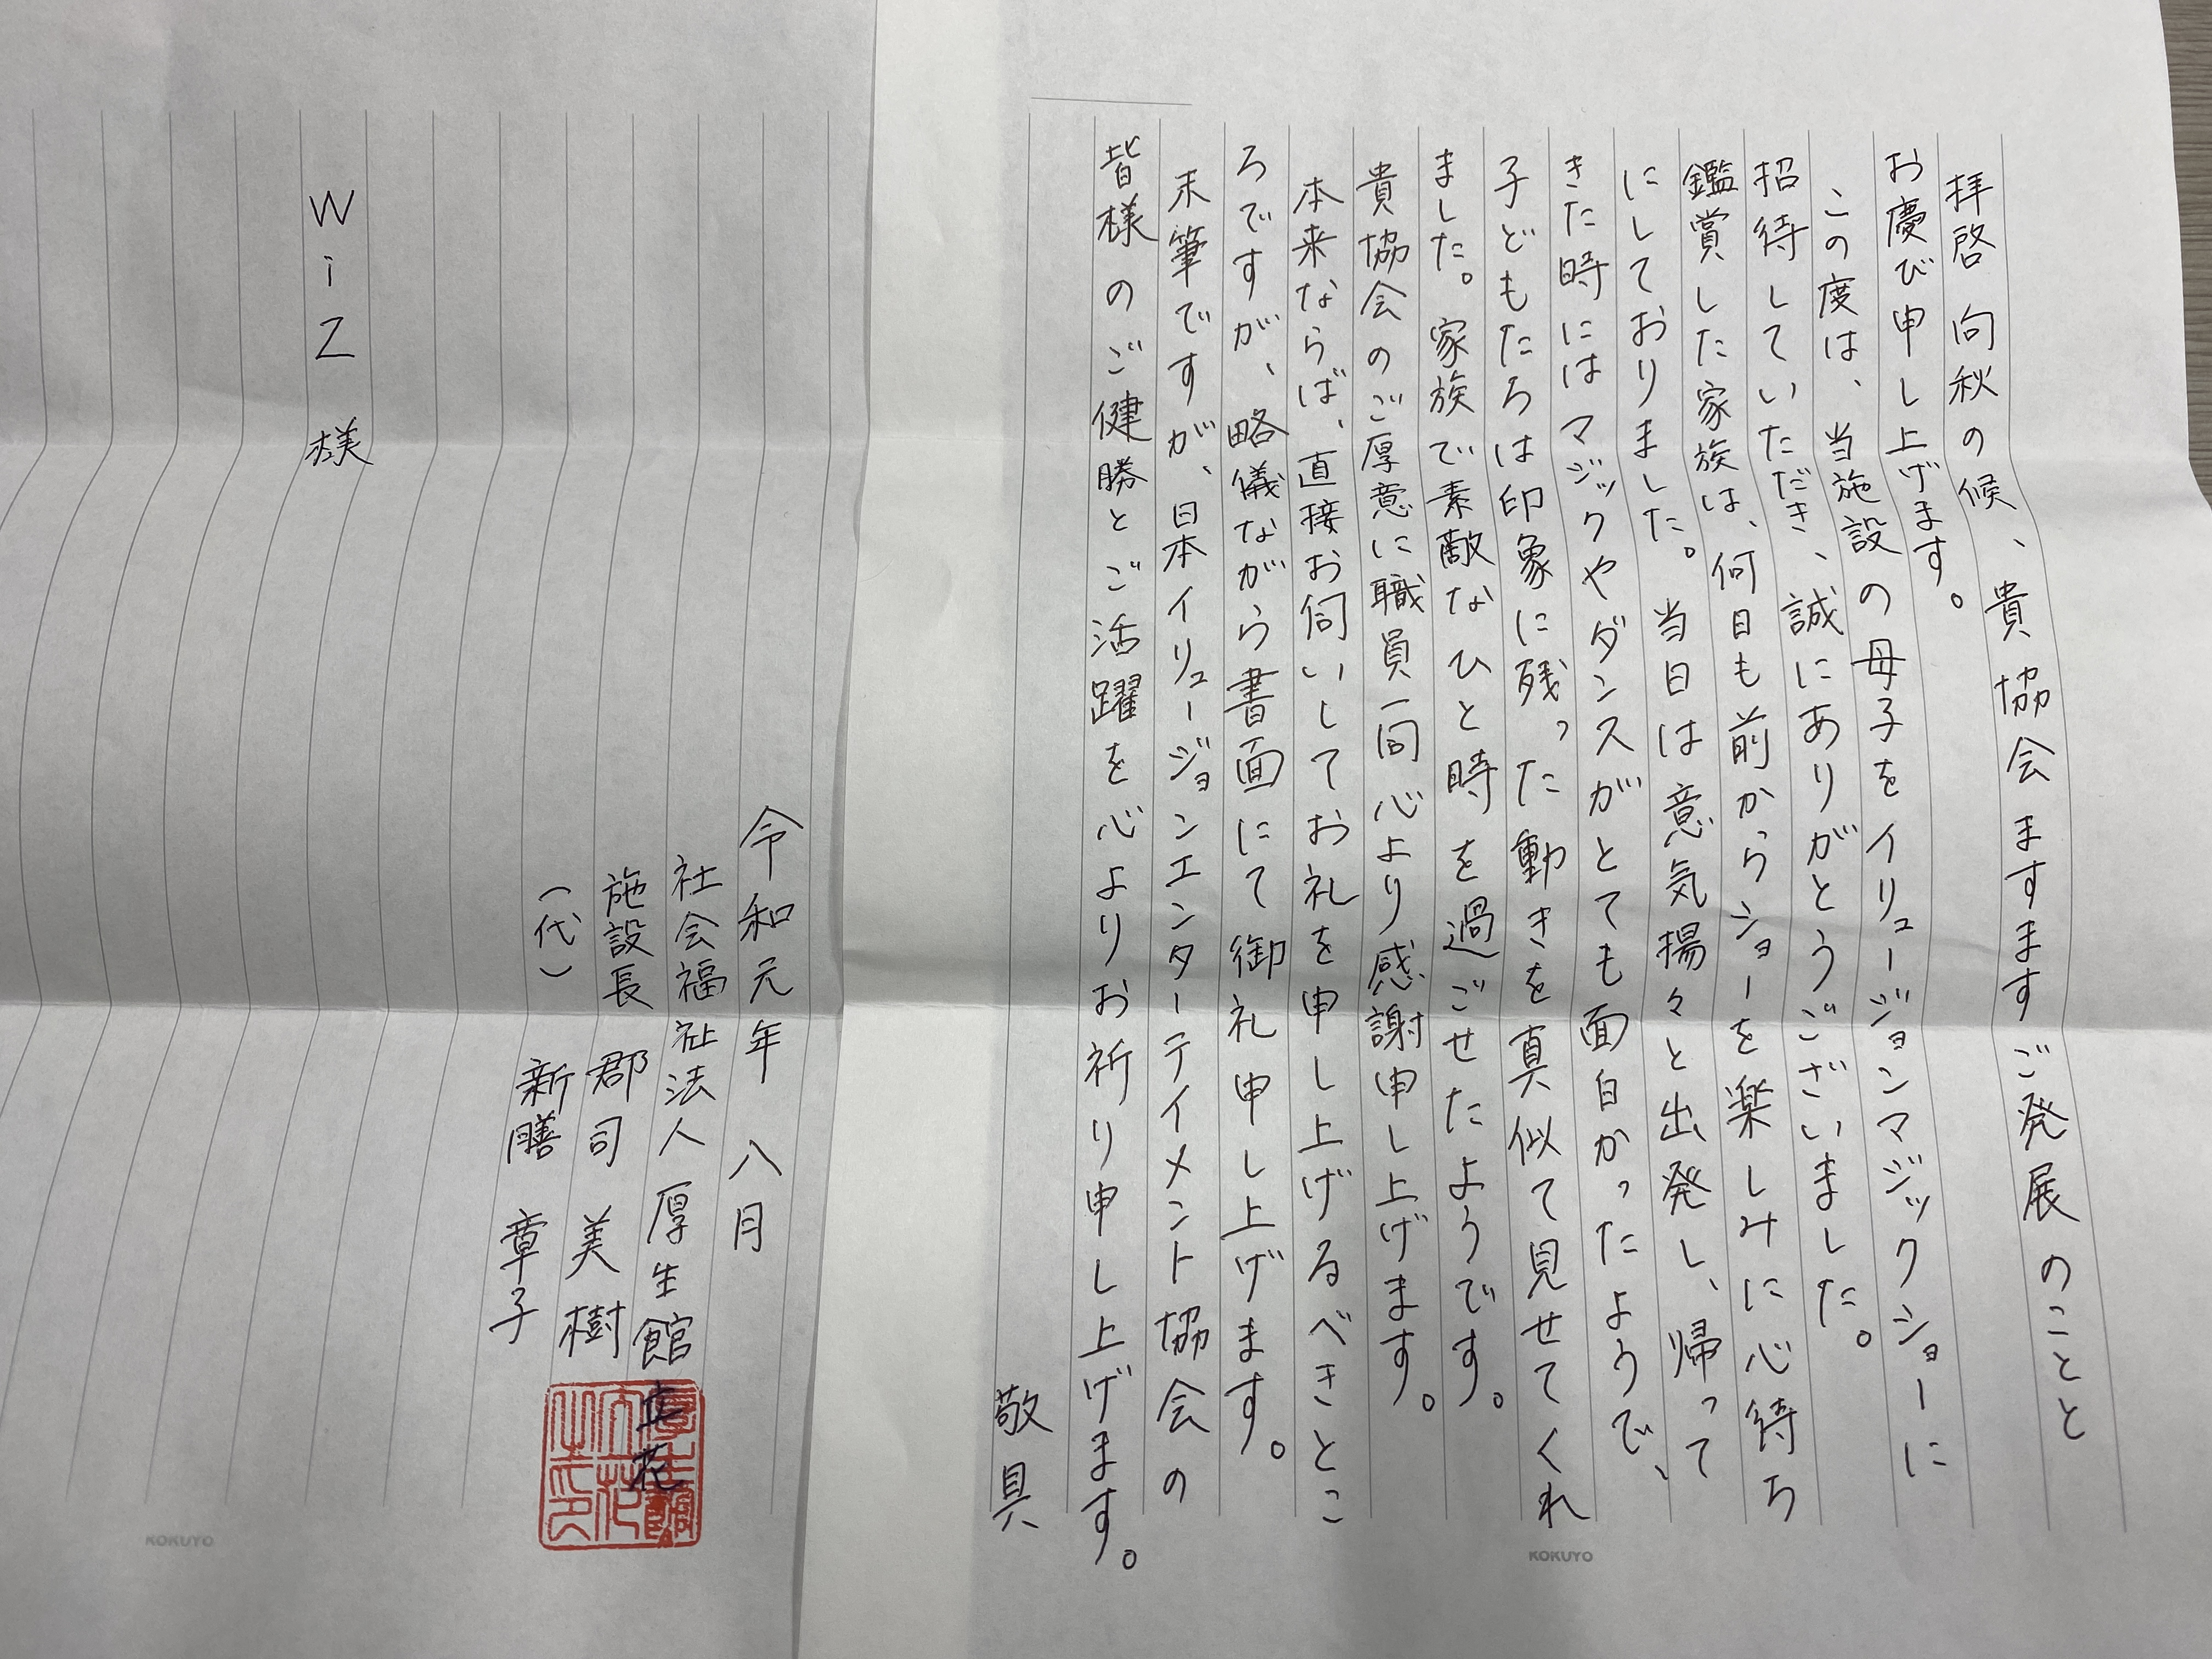 拝啓 向秋の候、貴協会ますますご発展のことと
お慶び申し上げます。
この度は、当施設の母子をイリュージョンマジックショーに
招待していただき、誠にありがとうございました。
鑑賞した家族は、何日も前からショーを楽しみに心待ち
にしておりました。当日は意気揚々と出発し、帰って
きた時にはマジックやダンスがとても面白かったようで、
子どもたちは印象に残った動きを真似て見せてくれ
ました。家族で素敵なひと時を過ごせたようです。
貴協会のご厚意に職員一同心より感謝申し上げます。
本来ならば、直接お伺いしてお礼を申し上げるべきとこ
ろですが、略儀ながら書面にて御礼申し上げます。
末筆ですが、日本イリュージョンエンターテイメント協会の
皆様のご健勝とご活躍を心よりお祈り申し上げます。
敬具
令和元年 八月
社会福祉法人 厚生館 立花
施設長 郡司 美樹
(代) 新膳 章子
WiZ 様
KOKUYO
KOKUYO